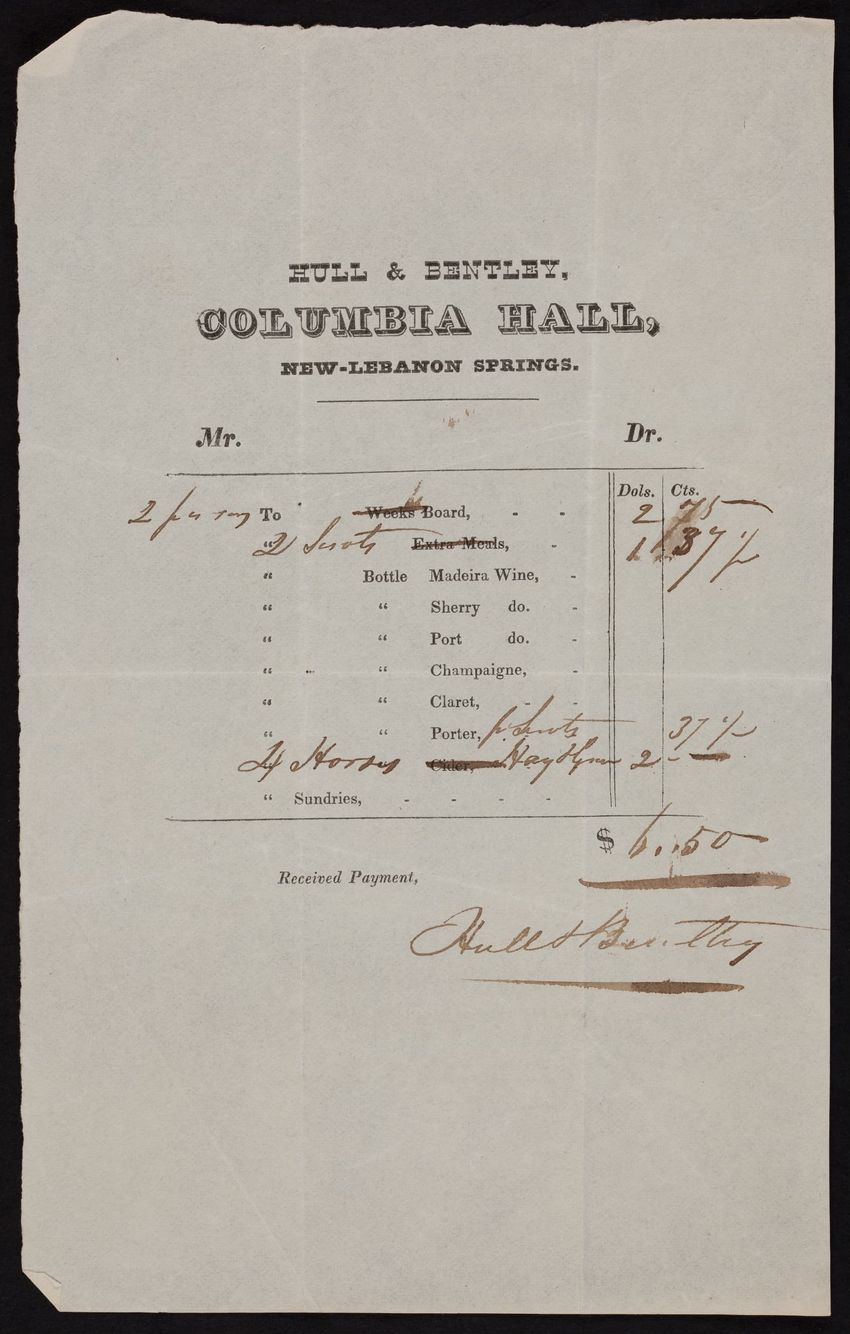 HULL & BENTLEY,
COLUMBIA HALL,
NEW-LEBANON SPRINGS.
Mr. Dr.
Dols. Cts.
2 To Weeks Board, - - 2 75
" 2 Extra Meals, - 1 37 ½
" Bottle Madeira Wine, -
" " Sherry do. -
" " Port do. -
" " Champaigne, -
" " Claret, - -
" " Porter, 37 ½
" Horses Cider, Hay 2 - —
" Sundries, - - - -
$ 6..50
Received Payment,
Hull & Bentley